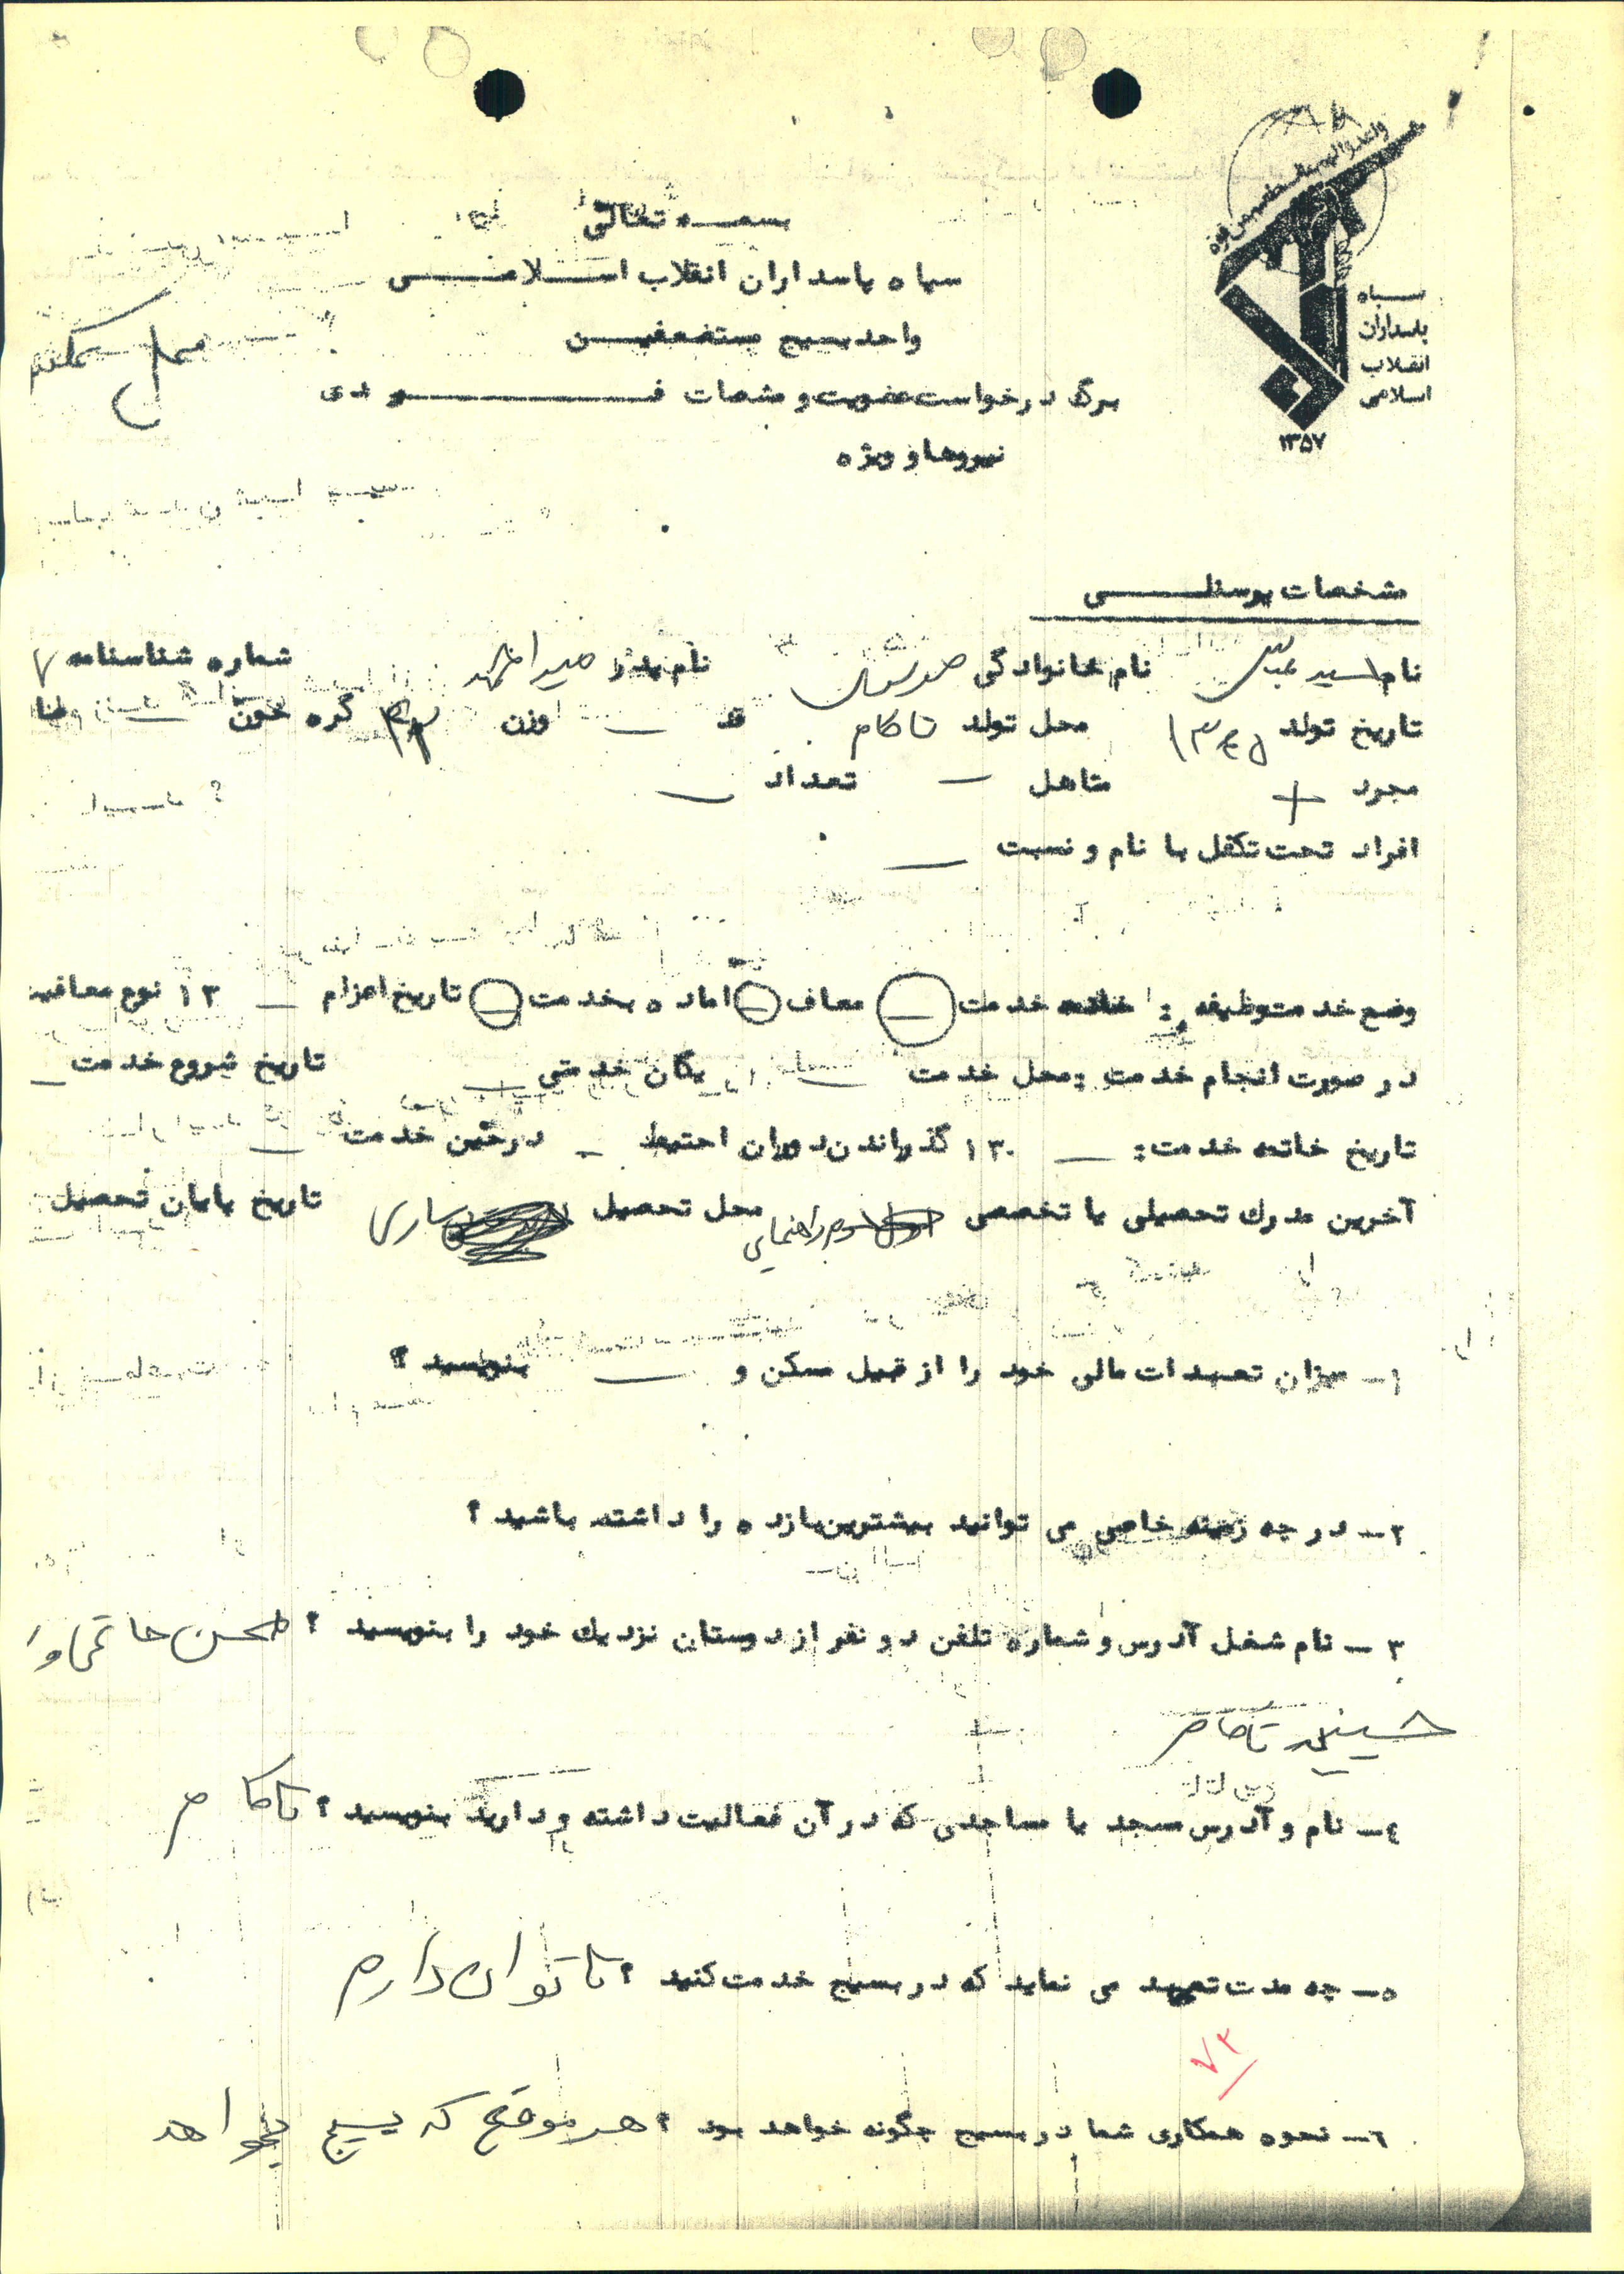 بسمه تعالی
سپاه پاسداران انقلاب اسلامی
واحد بسیج مستضعفین
محل عکس
برگ درخواست عضویت و مشخصات فردی
نیروهای ویژه
سپاه
پاسداران
انقلاب
اسلامی
۱۳۵۷
مشخصات پرسنلی
نام سید عباس نام خانوادگی موسوی نام پدر شماره شناسنامه ۷
تاریخ تولد ۱۳۴۵ محل تولد تاکام قد — وزن گره خون —
مجرد + متاهل — تعداد —
افراد تحت تکفل با نام و نسبت —
وضع خدمت وظیفه : خاتمه خدمت — معاف — آماده بخدمت — تاریخ اعزام — ۱۳ نوع معافیت
در صورت انجام خدمت : محل خدمت — یگان خدمتی — تاریخ شروع خدمت —
تاریخ خاتمه خدمت : — ۱۳۰ گذراندن دوران احتیاط — درحین خدمت —
آخرین مدرک تحصیلی یا تخصصی دوم راهنمایی محل تحصیل ساری تاریخ پایان تحصیل
۱— میزان تعهدات مالی خود را از قبیل مسکن و — بنویسید ؟
۲— در چه زمینه خاصی می توانید بیشترین بازده را داشته باشید ؟
۳— نام شغل آدرس و شماره تلفن دو نفر از دوستان نزدیک خود را بنویسید ؟
حسینی تاکام
٤— نام و آدرس مسجد یا مساجدی که در آن فعالیت داشته و دارید بنویسید ؟ تاکام
۵— چه مدت تعهد می نماید که در بسیج خدمت کنید ؟ تا توان دارم
۷۲
٦— نحوه همکاری شما در بسیج چگونه خواهد بود ؟ هر موقع که بسیج بخواهد